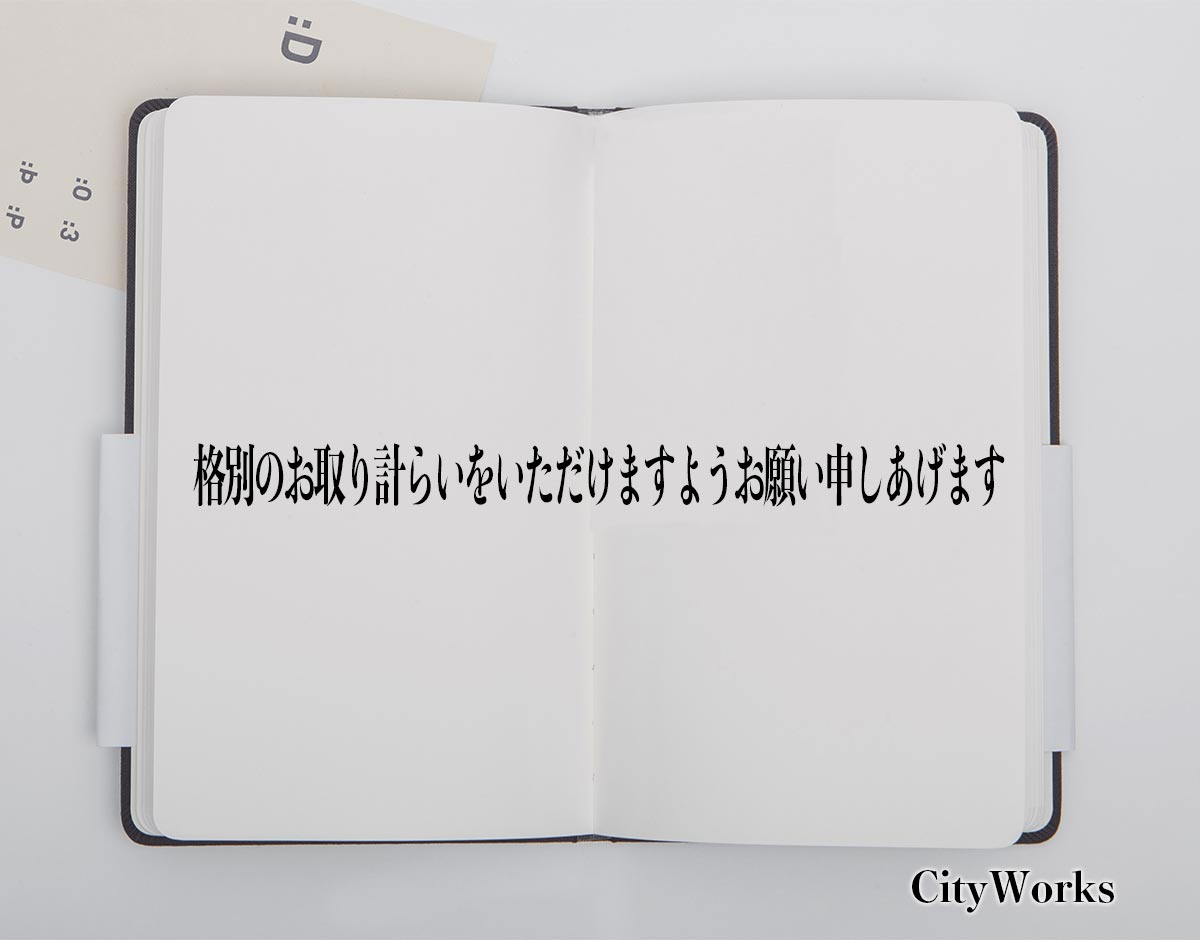 :D
:P
:O
:P
:3
格別のお取り計らいをいただけますようお願い申しあげます
CityWorks